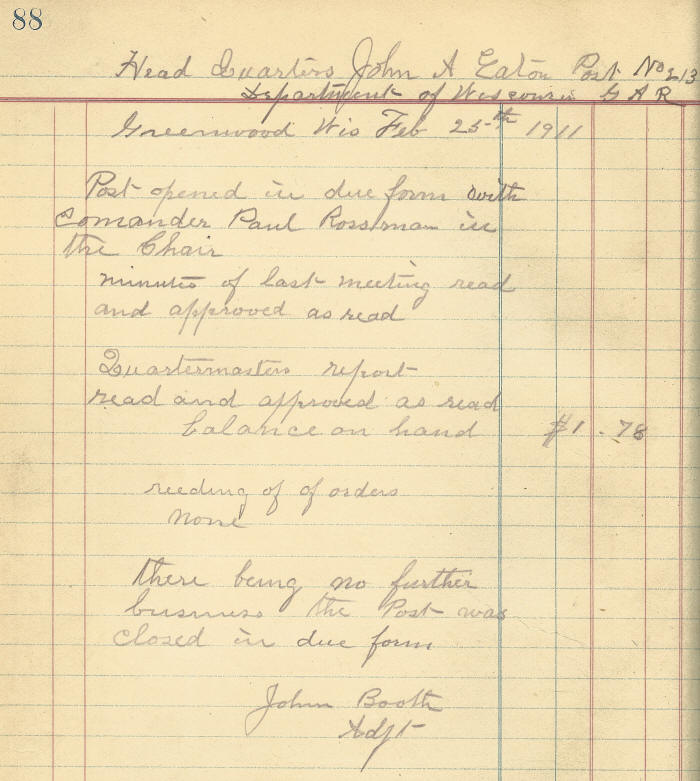 88
Head Quarters John A Eaton Post No 213
Department of Wisconsin G A R
Greenwood Wis Feb 25th 1911
Post opened in due form with
Comander Paul Rossman in
the Chair
minutes of last meeting read
and approved as read
Quartermasters report
read and approved as read
balance on hand $1.78
reeding of of orders
none
there being no further
business the Post was
closed in due form
John Booth
Adjt